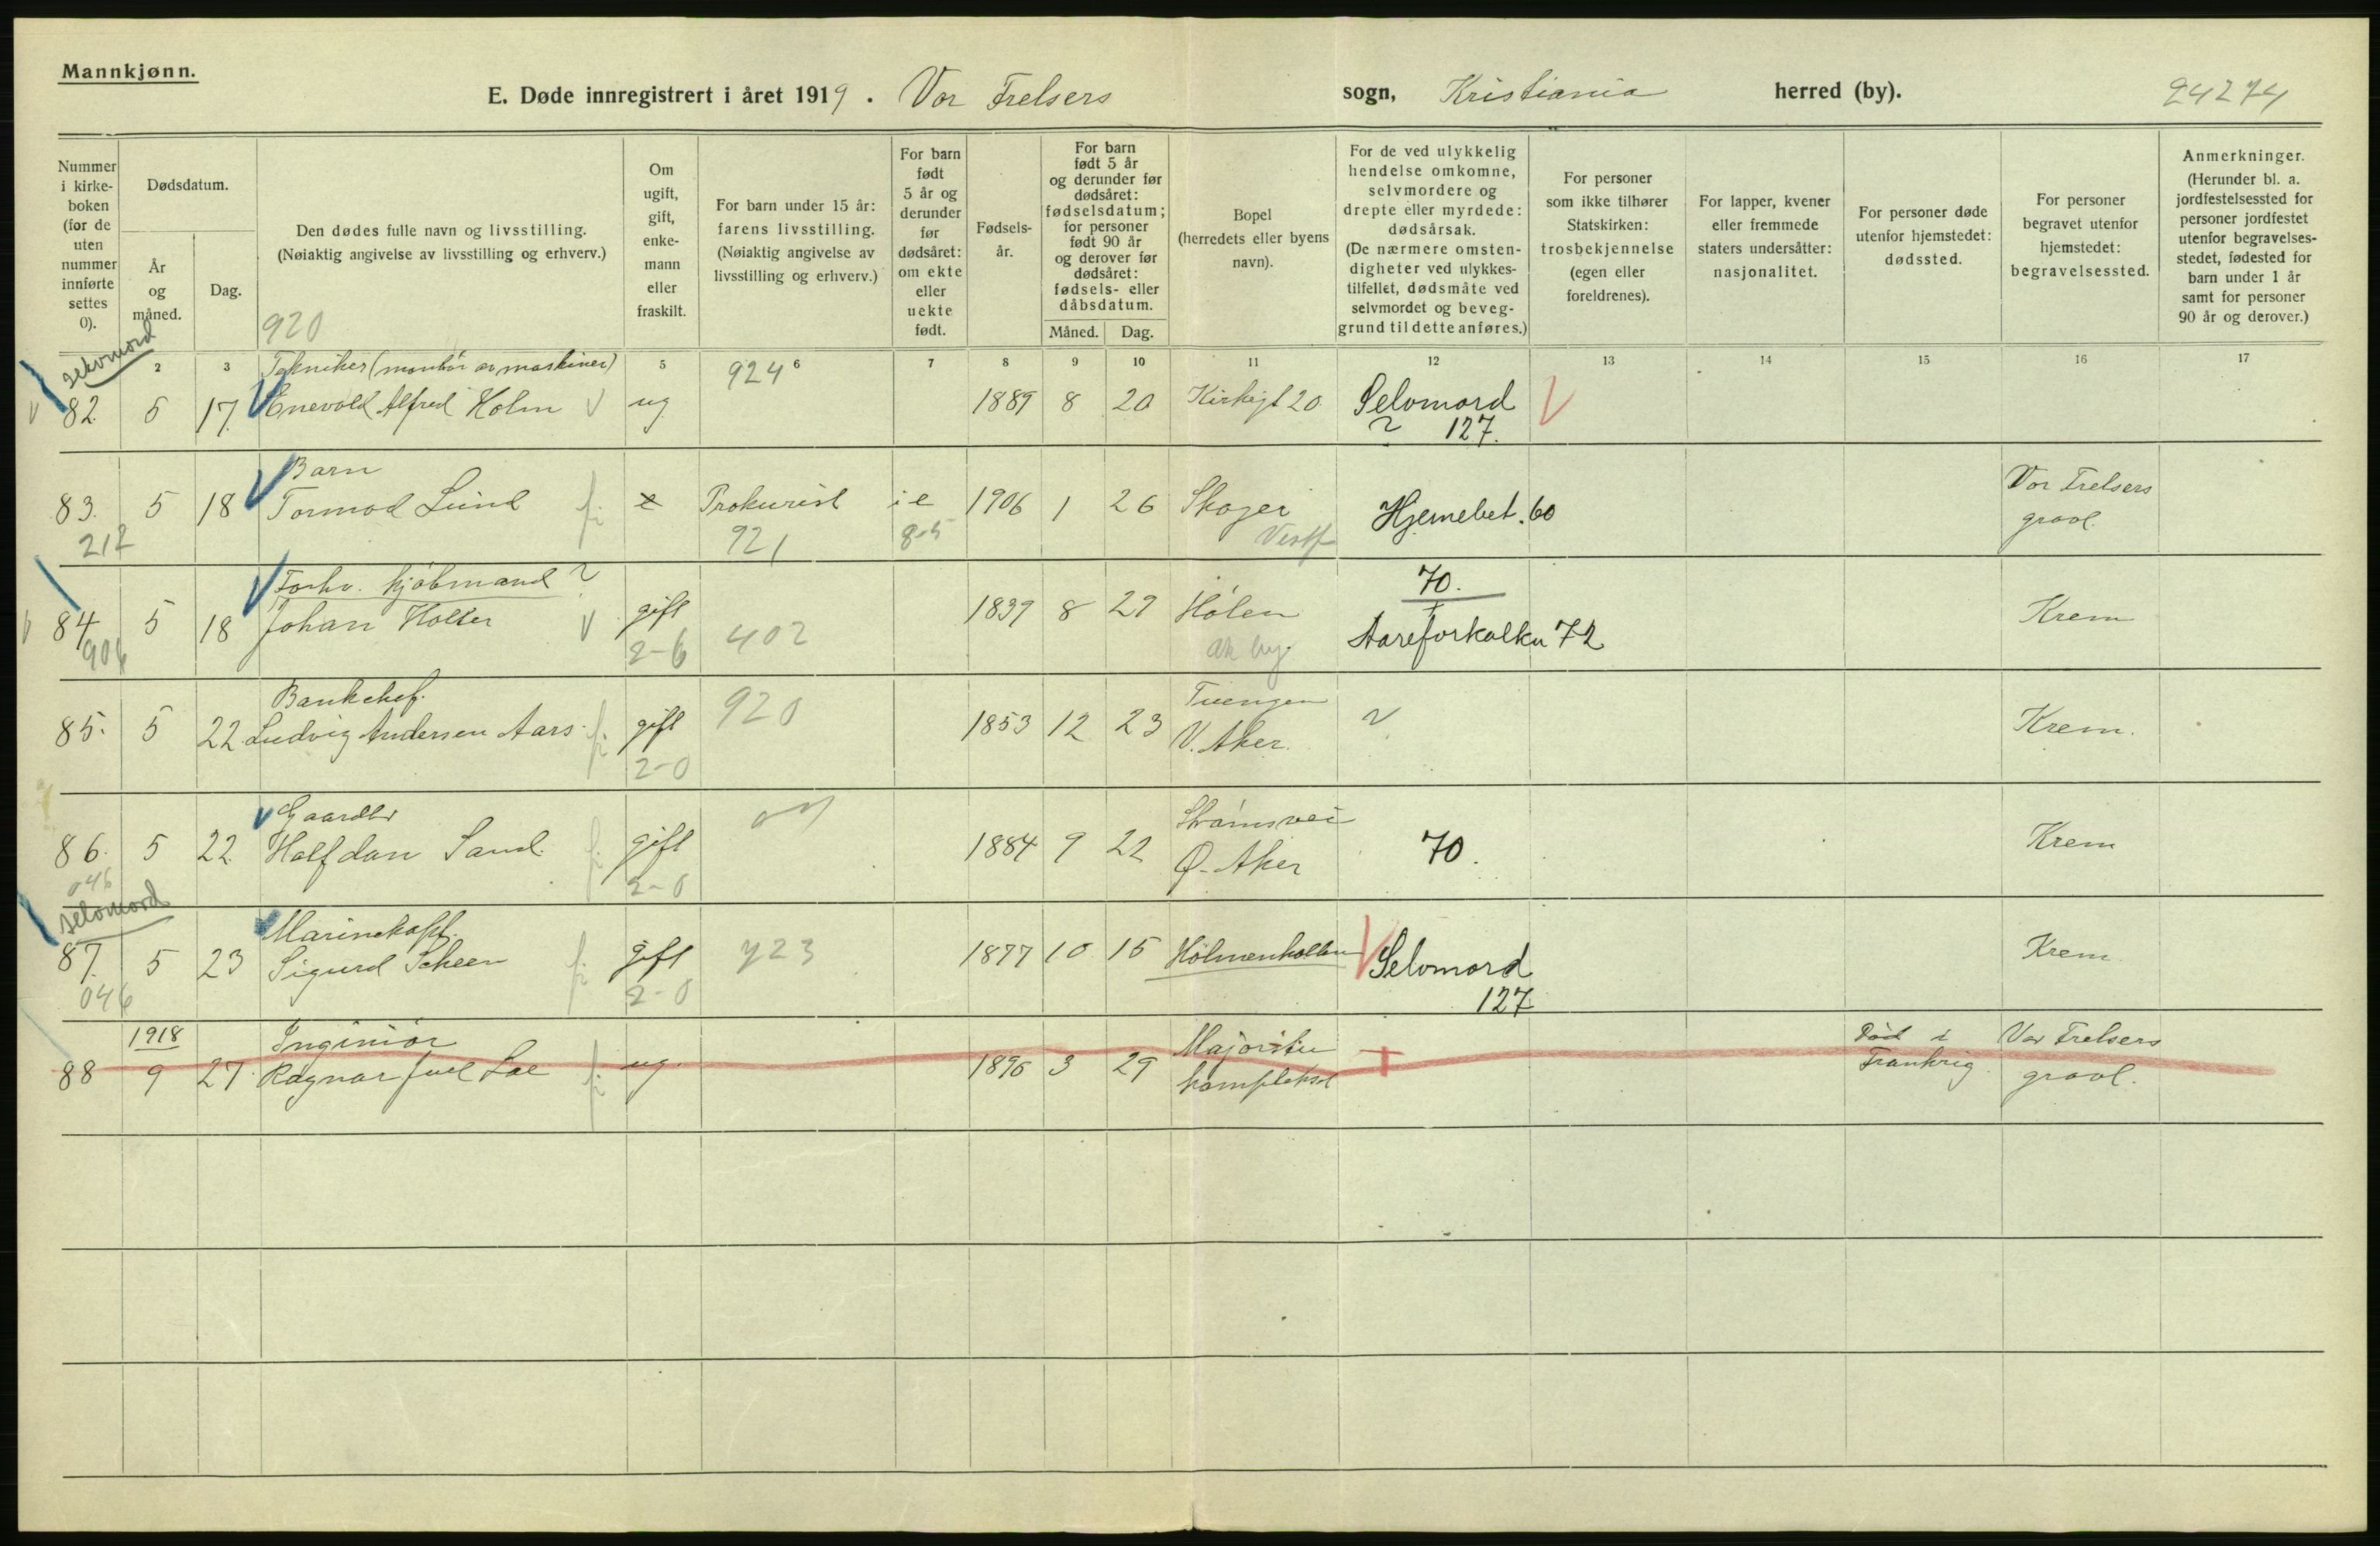 Mannkjønn.
E. Døde innregistrert i året 1919. Vor Frelsers sogn, Kristiania herred (by). 24274
Nummer i kirkeboken (for de uten nummer innførte settes 0).
Dødsdatum.
År og måned.
Dag.
Den dødes fulle navn og livsstilling.
(Nøiaktig angivelse av livsstilling og erhverv.)
920
Om ugift, gift, enkemann eller fraskilt.
For barn under 15 år: farens livsstilling.
(Nøiaktig angivelse av livsstilling og erhverv.)
For barn født 5 år og derunder før dødsåret: om ekte eller uekte født.
Fødselsår.
For barn født 5 år og derunder før dødsåret: fødselsdatum; for personer født 90 år og derover før dødsåret: fødsels- eller dåbsdatum.
Måned. Dag.
Bopel
(herredets eller byens navn).
For de ved ulykkelig hendelse omkomne, selvmordere og drepte eller myrdede: dødsårsak.
(De nærmere omstendigheter ved ulykkestilfellet, dødsmåte ved selvmordet og beveggrund til dette anføres.)
For personer som ikke tilhører Statskirken: trosbekjennelse (egen eller foreldrenes).
For lapper, kvener eller fremmede staters undersåtter: nasjonalitet.
For personer døde utenfor hjemstedet: dødssted.
For personer begravet utenfor hjemstedet: begravelsessted.
Anmerkninger.
(Herunder bl. a. jordfestelsessted for personer jordfestet utenfor begravelsesstedet, fødested for barn under 1 år samt for personer 90 år og derover.)
2 3 5 6 7 8 9 10 11 12 13 14 15 16 17
selvmord
Tekniker (montör av maskiner) 924
82. 5 17. Enevold Alfred Holm ug 1889 8 20 Kirkegt 20. Selvmord
? 127.
Barn
83. 5 18 Tormod Lund e Prokurist i e 1906 1 26 Skoger Hjernebet. 60 Vor Frelsers gravl.
212 921 8-5 Vestf
Forhv. kjøbmand ? 70.
84 5 18 Johan Holter gift 1839 8 29 Hölen Aareforkalkn 72 Krem
906 2-6 402 Ak
Bankchef. 920 Tuengen
85. 5 22. Ludvig Andersen Aars gift 1853 12 23 V. Aker. ? Krem.
2-0
Gaardbr Strömsvei
86. 5 22. Halfdan Sand gift 1884 9 22 Ø. Aker 70. Krem
046 2-0
selvmord
Marinekapt.
87. 5 23 Sigurd Scheen gift 723 1877 10 15 Holmenkollen Selvmord Krem.
046 2-0 127
1918 Ingeniör Majorstu Död i Vor Frelsers
88 9 27. Ragnar Juel Loe ug. 1896 3 29 komplekset + Frankrig gravl.